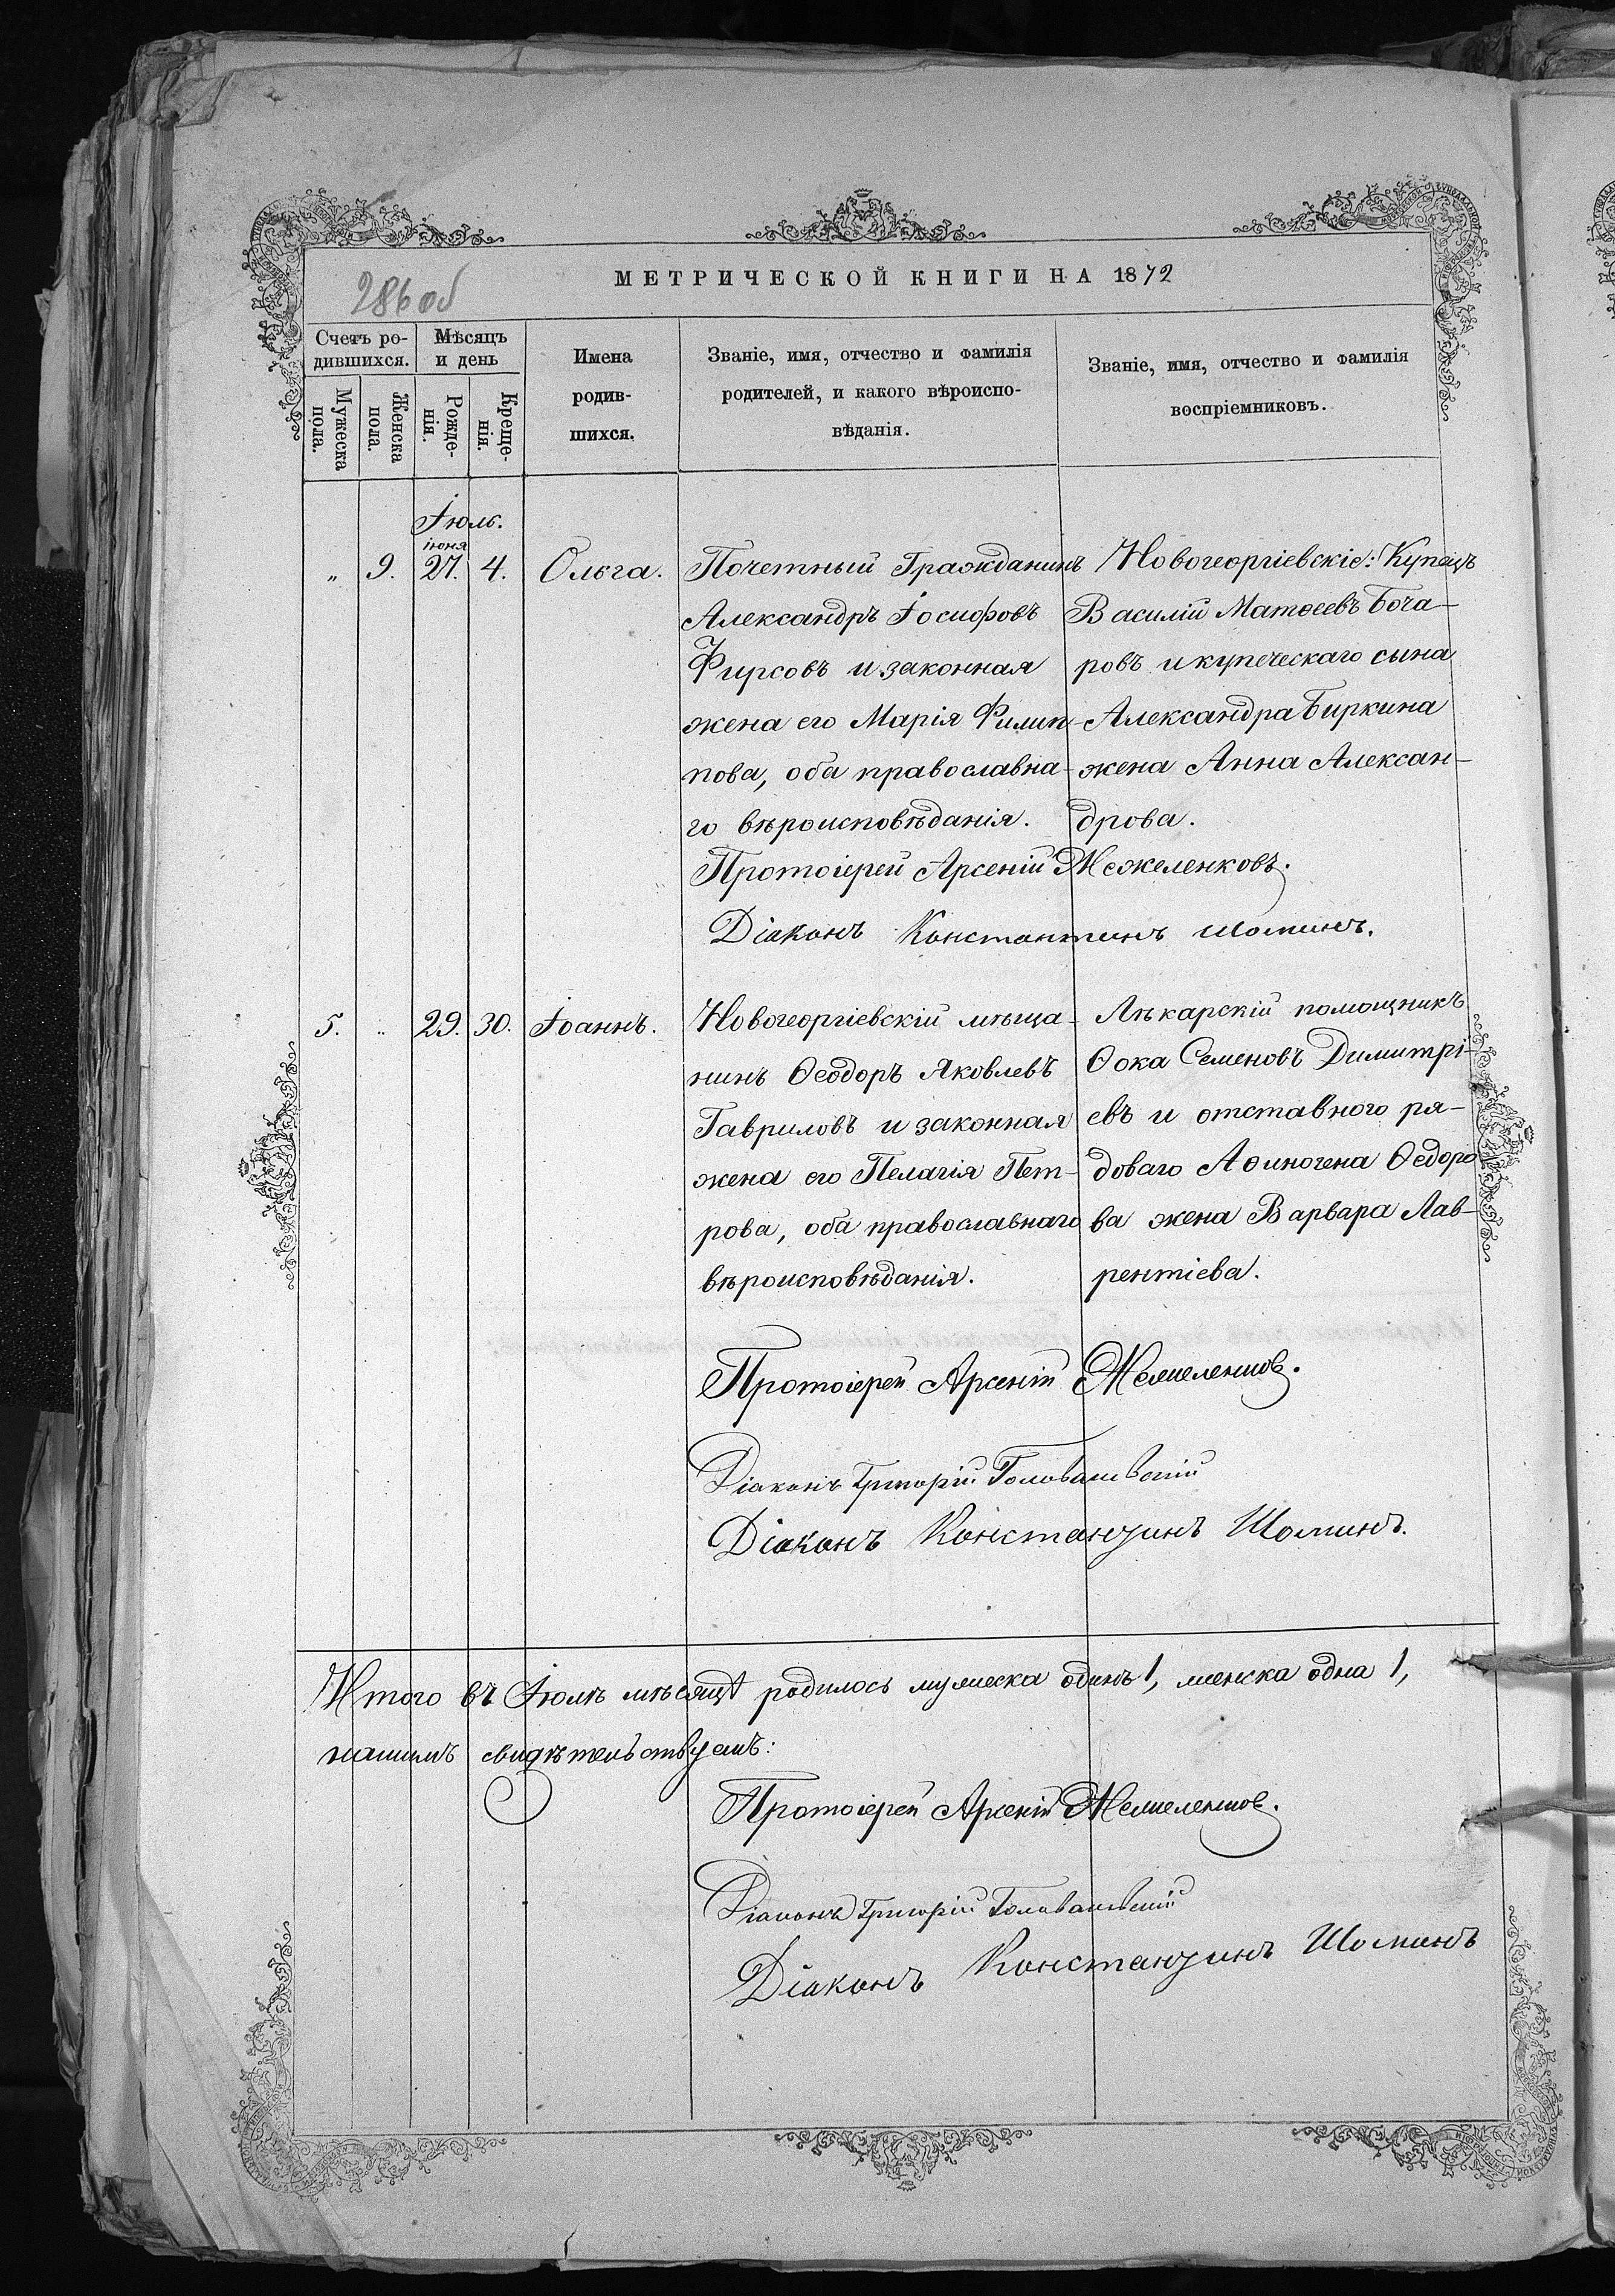 МЕТРИЧЕСКОЙ КНИГИ НА 1872
286 об
Счетъ ро-
дившихся.
Мѣсяцъ
и день
Мужеска
пола.
Женска
пола.
Рожде-
нія.
Креще-
нія.
Имена
родив-
шихся.
Званіе, имя, отчество и фамилія
родителей, и какого вѣроиспо-
вѣданія.
Званіе, имя, отчество и фамилія
воспріемниковъ.
Іюль.
іюня
" 9. 27. 4. Ольга.
Почетный Гражданинъ
Александръ Іосифовъ
Фирсовъ и законная
жена его Марія Филип-
пова, оба православна-
го вѣроисповѣданія.
Новогеоргіевскіе: Купецъ
Василій Матѳеевъ Боча-
ровъ и купеческаго сына
Александра Биркина
жена Анна Алексан-
дрова.
Протоіерей Арсеній Межеленковъ.
Діаконъ Константинъ Шоминъ.
5. " 29. 30. Іоаннъ.
Новогеоргіевскій мѣща-
нинъ Ѳеодоръ Яковлевъ
Гавриловъ и законная
жена его Пелагія Пет-
рова, оба православнаго
вѣроисповѣданія.
Лѣкарскій помощникъ
Ѳока Семеновъ Димитрі-
евъ и отставного ря-
доваго Аѳиногена Ѳедоро-
ва жена Варвара Лав-
рентіева.
Протоіерей Арсеній
Діаконъ Григорій
Діаконъ Константинъ Шоминъ.
Итого въ Іюлѣ мѣсяцѣ родилось мужеска одинъ 1, женска одна 1,
свидѣтельствуемъ:
Протоіерей Арсеній
Діаконъ Григорій
Діаконъ Константинъ Шоминъ